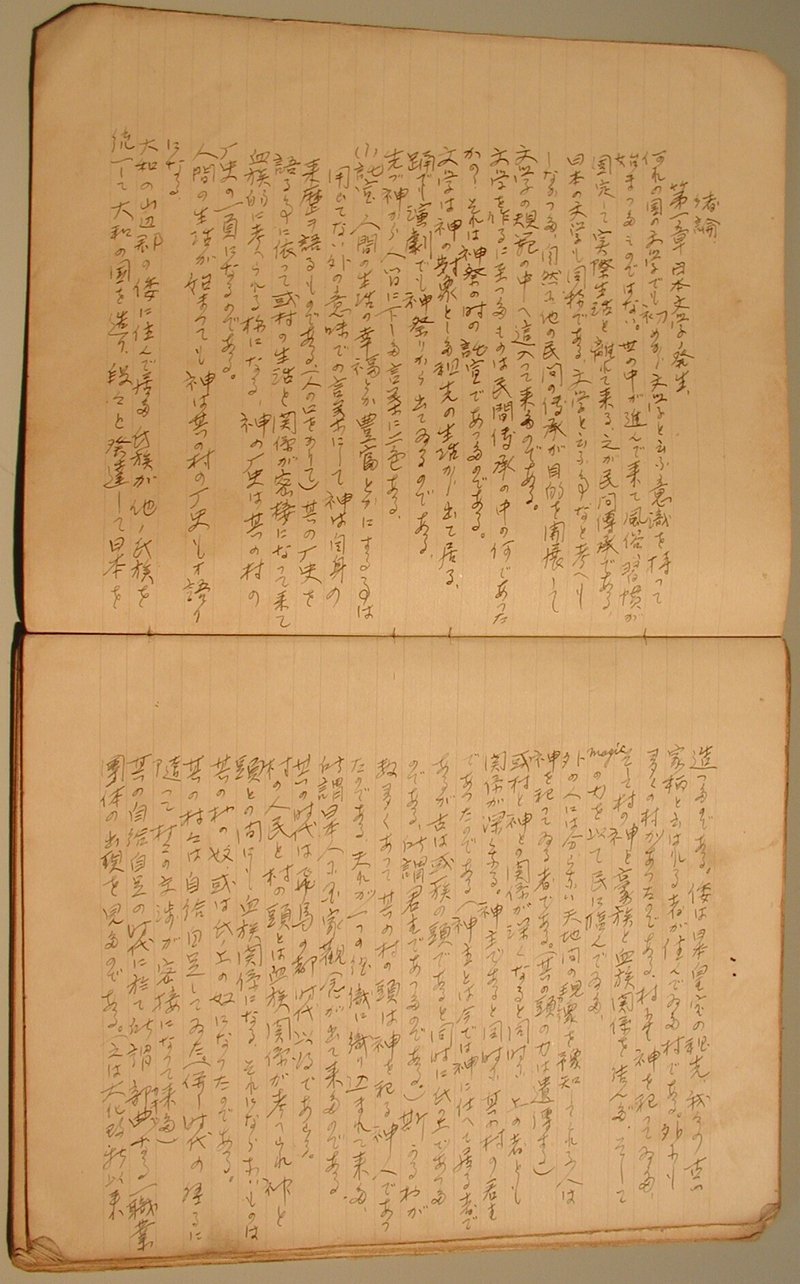 緒論
第一章 日本文学の発生、
何れの国の文学でも初めから文学と云ふ意識を持って
始まったものではない。世の中が進んで来て風俗、習慣が
固定して実際生活と離れて来る、之が民間傳承である、
日本の文学も同様である、文学と云ふ事など考へも
しなかった、自然に他の民間の傳承が目的を開展して
文学の規範の中へ這入って来るのである。
文学を作るに至ったものは民間傳承の中の何であった
か？それは神祭の時の託宣であったのである。
文学は神の対象とした祖先の生活から出て居る、
踊でも演劇でも神祭りから出てゐるのである、
先づ神から人間に下した言葉に二色ある、
(小託宣、人間の生活の幸福とか豊富とかにする事は
用ひてない外の意味での言葉にして神は自身の
来歴ヲ語るものである、(一人の口をかりて)其の丆史を
語る事に依って或村の生活と関係が密接になって来て
血族的に考へられる様になる、神の丆史は其の村の
丆史の一頁になるのである。
人間の生活が始まっても神は其の村の丆史しか語り
になる
大和の山辺郡の倭に住んで居た氏族が他ノ氏族を
統一して大和の国を造り、段々と発達して日本を
造ったのである。倭は日本皇室の祖先、我々の
家柄と云はれる者が住んでゐた村である。外にも
多くの村があったのである、村々では神を祀ってゐた、
そして村の神と豪族と血族関係を結んだ、そして
magicの力を以て民に臨んでゐた、
外の人には分らない天地間の現象を機知してゐる人は
神を祀ってゐる者である。(其の頭の力は遺傳する)
或村と神との関係が深くなると同時に上の者とも
関係が深くなる。神主であると同時に其の村の君主
であったのである(神主とは今では神に仕へて居る者で
あるが古は或一族の頭であると同時に氏上であった
のである、所謂君主であったのである。)斯うるわが
数多くあって其の村の頭は神を祀る神人であっ
たのである、夫れが一つの組織に織り込まれて来た、
所謂日本人に国家観念が出て来たのである
其の時代は飛鳥の都時代以後である。
村の人民と村の頭とは血族関係が考へられ神と
頭との間にも血族関係になる、それにならないものは
其の村の奴或は氏上の奴になったのである。
其の村々は自給自足してゐた(併し時代の降るに
随って村々の交渉が密接になって来た)
其の自給自足の時代に於て所謂部曲なる(職業
團体の出現を見たのである。之は大化改新以来